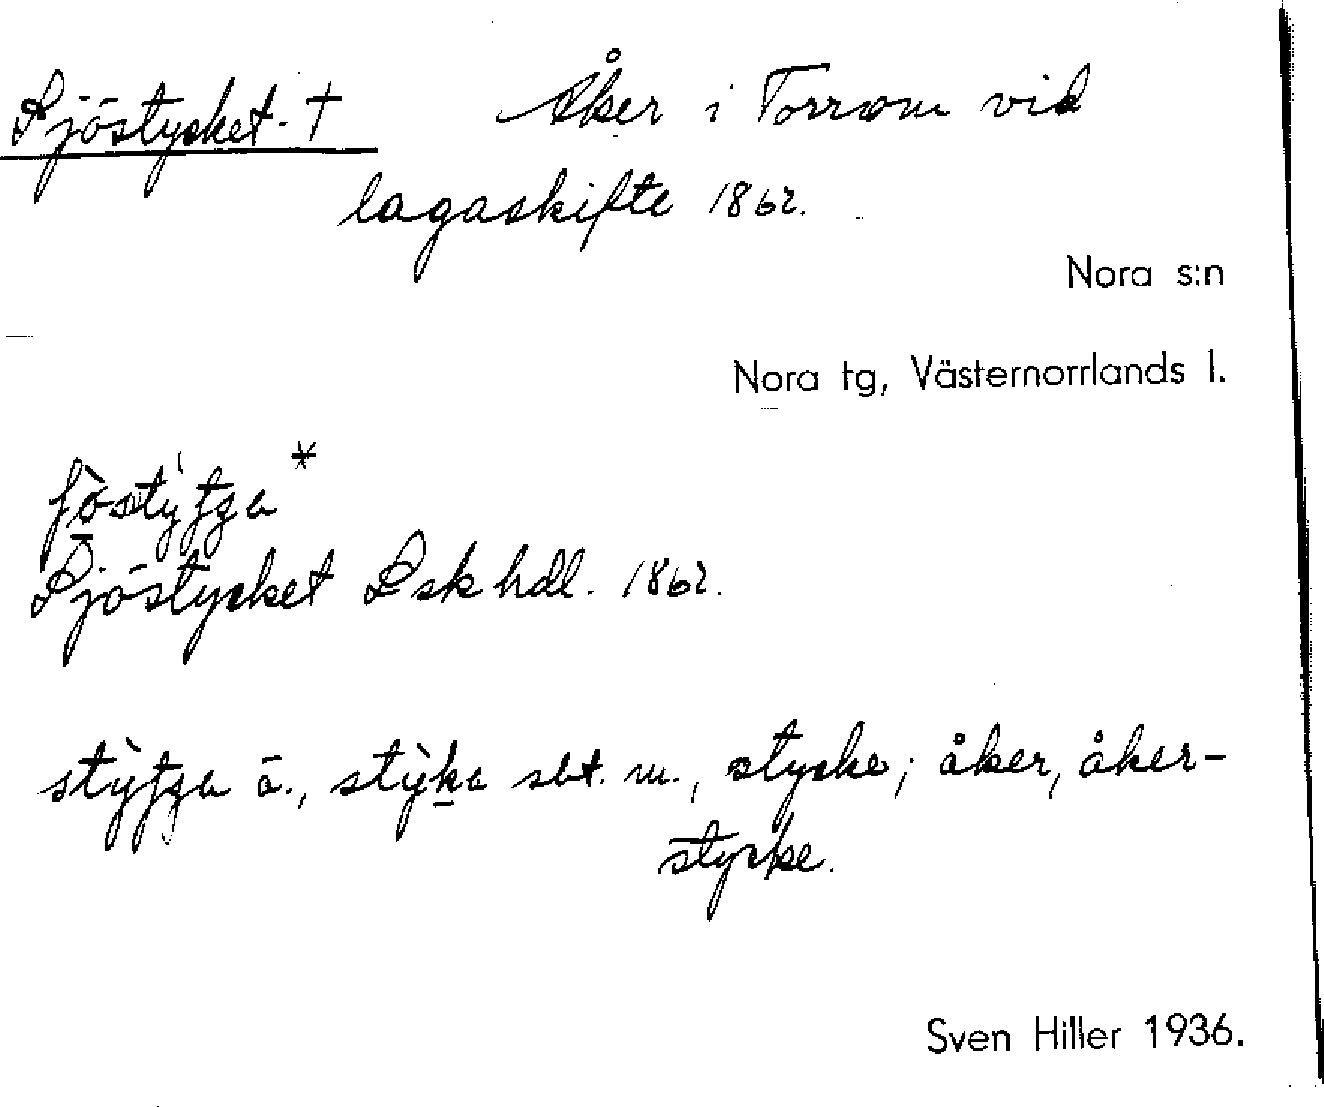 Sjöstycket. † Åker i Torrom vid
lagaskifte 1862.
Nora s:n
Nora tg, Västernorrlands l.
Sjöstycket Lskhdl. 1862.
ä., sbt. m., stycke; åker, åker-
stycke.
Sven Hiller 1936.